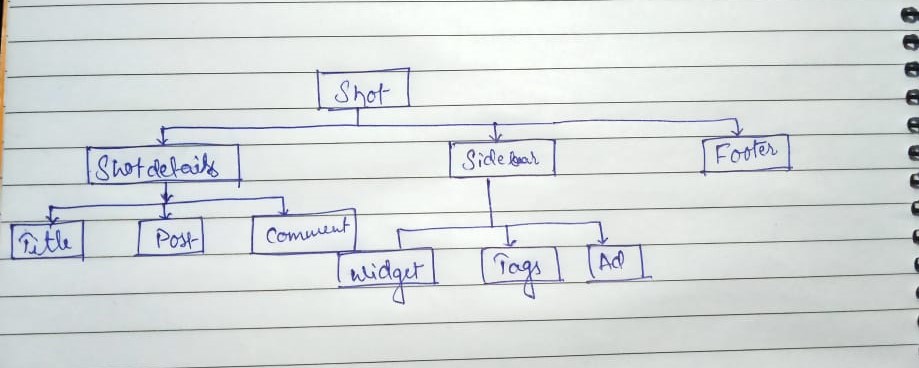 Shot
Shotdetails
Sidebar
Footer
Title
Post
Comment
Widget
Tags
Ad